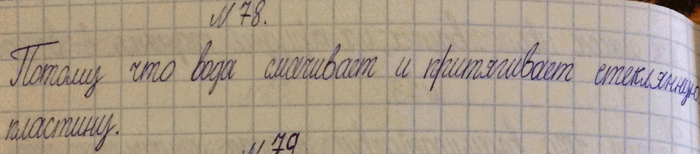 N 78.
Потому что вода смачивает и притягивает стеклянную
пластину.
N 79